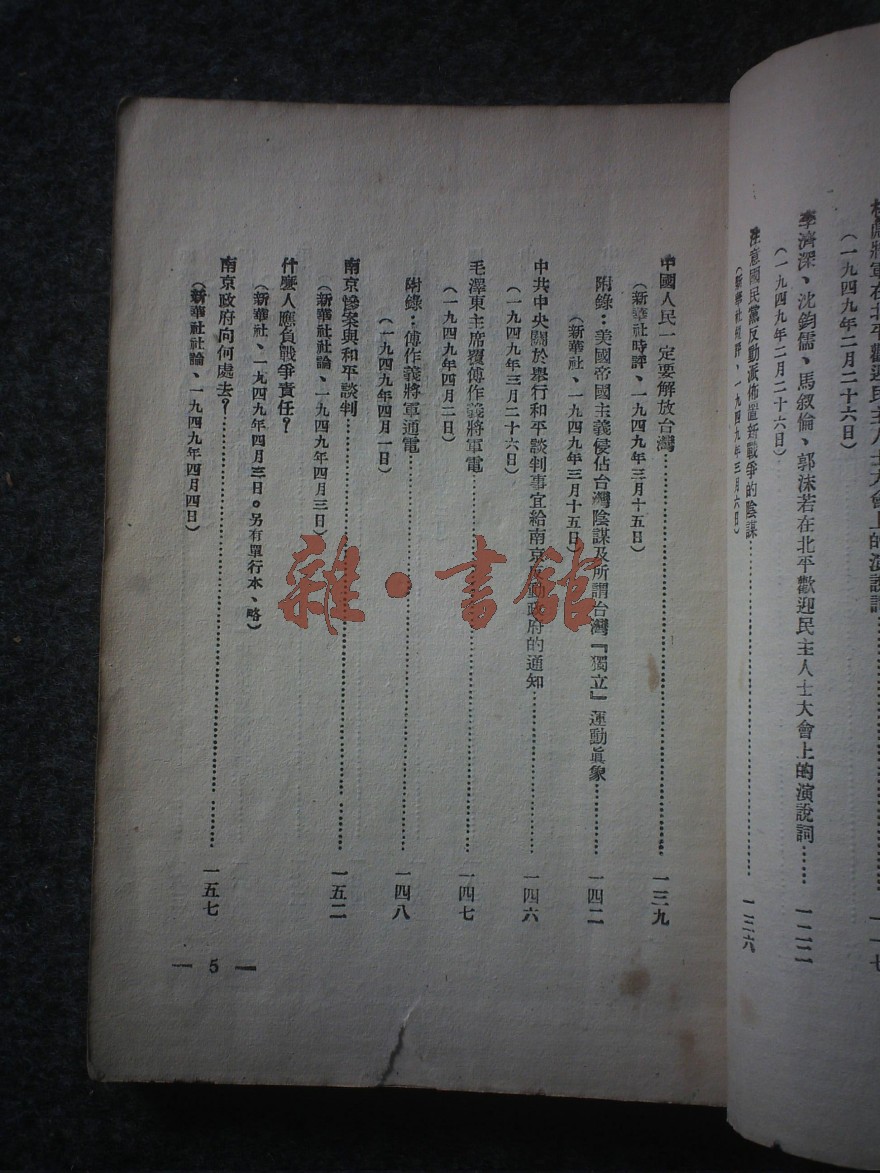 將軍在北平歡迎民主人士大會上的演說詞
（一九四九年二月二十六日）
李濟深、沈鈞儒、馬叙倫、郭沫若在北平歡迎民主人士大會上的演說詞……一二二
（一九四九年二月二十六日）
注意國民黨反動派佈置新戰爭的陰謀……一三六
（新華社短評、一九四九年三月六日）
中國人民一定要解放台灣……一三九
（新華社時評、一九四九年三月十五日）
附錄：美國帝國主義侵佔台灣陰謀及所謂台灣『獨立』運動眞象……一四二
（新華社、一九四九年三月十五日）
中共中央關於舉行和平談判事宜給南京反動政府的通知……一四六
（一九四九年三月二十六日）
毛澤東主席覆傅作義將軍電……一四七
（一九四九年四月二日）
附錄：傅作義將軍通電……一四八
（一九四九年四月一日）
南京慘案與和平談判……一五二
（新華社社論、一九四九年四月三日）
什麼人應負戰爭責任？
（新華社、一九四九年四月三日。另有單行本、略）
南京政府向何處去？……一五七
（新華社社論、一九四九年四月四日）
— 5 —
雜·書館